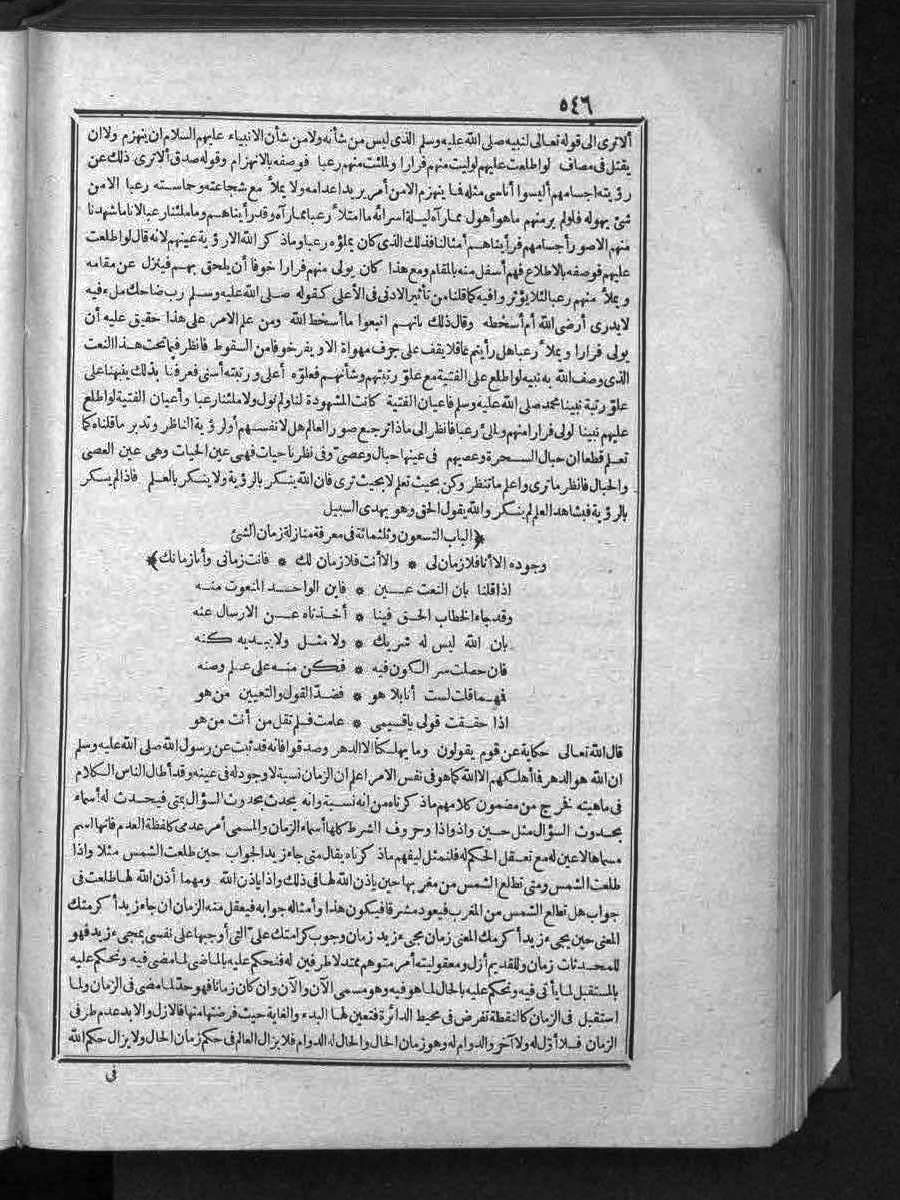 ٥٤٦
ألا ترى الى قوله تعالى لنبيه صلى الله عليه وسلم الذى ليس من شأنه ولا من شأن الانبياء عليهم السلام ان ينهزم ولا ان
يقتل فى مصاف لو اطلعت عليهم لوليت منهم فرارا وملئت منهم رعبا فوصفه بالانهزام وقوله صدق ألا ترى ذلك عن
رؤيته اجسامهم أليسوا أناسى مثله فما ينهزم الا من أمر يريد اعدامه ولا يملأ مع شجاعته وحماسته رعبا الا من
شئ يهوله فلو لم ير منهم ما هو أهول مما رآه ليلة اسرائه ما امتلأ رعبا مما رآه وقد رأيناهم وما ملئنا رعبا لانا ما شهدنا
منهم الا صور أجسامهم فرأيناهم أمثالنا فذلك الذى كان يملؤه رعبا وما ذكر الله الا رؤية عينهم لانه قال لو اطلعت
عليهم فوصفه بالاطلاع فهم أسفل منه بالمقام ومع هذا كان يولى منهم فرارا خوفا أن يلحق بهم فينزل عن مقامه
ويملأ منهم رعبا لئلا يؤثر وافيه كما قلنا من تأثير الادنى فى الأعلى كقوله صلى الله عليه وسلم رب ضاحك ملء فيه
لا يدرى أرضى الله أم أسخطه وقال ذلك بانهم اتبعوا ما أسخط الله ومن علم الامر على هذا حقيق عليه أن
يولى فرارا ويملأ رعبا هل رأيتم عاقلا يقف على جرف مهواة الا ويفر خوفا من السقوط فانظر فيما تحت هذا النعت
الذى وصف الله به نبيه لو اطلع على الفتية مع علوّ رتبتهم وشأنهم فعلوّه أعلى ورتبته أسنى فعرفنا بذلك ينبهنا على
علوّ رتبة نبينا محمد صلى الله عليه وسلم فاعيان الفتية كانت المشهودة لنا ولم نول ولا ملئنا رعبا وأعيان الفتية لو اطلع
عليهم نبينا لولى فرارا منهم ولملئ رعبا فانظر الى ماذا ترجع صور العالم هل لانفسهم أو لرؤية الناظر وتدبر ما قلناه كما
تعلم قطعا ان حبال السحرة وعصيهم فى عينها حبال وعصى وفى نظرنا حيات فهى عين الحيات وهى عين العصى
والحبال فانظر ما ترى واعلم ما تنظر وكن بحيث تعلم لا بحيث ترى فان الله ينكر بالرؤية ولا ينكر بالعلم فاذا لم ينكر
بالرؤية فبشاهد العلم لم ينكر والله يقول الحق وهو يهدى السبيل
﴿الباب التسعون وثلثمائة فى معرفة منازلة زمان الشئ
وجوده الا أنا فلا زمان لى * والا أنت فلا زمان لك * فانت زمانى وأنا زمانك﴾
اذا قلنا بان النعت عين * فاين الواحد المنعوت منه
وقد جاء الخطاب الحق فينا * أخذناه عن الارسال عنه
بان الله ليس له شريك * ولا مثل ولا يبديه كنه
فان حصلت سر الكون فيه * فكن منه على علم وصنه
فهما قلت لست أنا بلا هو * فضدّ القول والتعيين من هو
اذا حققت قولى ياقسيمى * علمت فلم تقل من أنت من هو
قال الله تعالى حكاية عن قوم يقولون وما يهلكنا الا الدهر وصدقوا فانه قد ثبت عن رسول الله صلى الله عليه وسلم
ان الله هو الدهر فما أهلكهم الا الله كما هو فى نفس الامر اعلم ان الزمان نسبة لا وجود له فى عينه وقد أطال الناس الكلام
فى ماهيته فخرج من مضمون كلامهم ما ذكرناه من انه نسبة وانه يحدث بحدوث السؤال بمتى فيحدث له أسماء
بحدوث السؤال مثل حين واذ واذا وحروف الشرط كلها أسماء الزمان والمسمى أمر عدمى كلفظة العدم فانها اسم
مسماها لا عين له مع تعقل الحكم له فلنمثل ليفهم ما ذكرناه يقال متى جاء زيد الجواب حين طلعت الشمس مثلا واذا
طلعت الشمس ومتى تطلع الشمس من مغربها حين ياذن الله لها فى ذلك واذا ياذن الله ومهما أذن الله لها طلعت فى
جواب هل تطلع الشمس من المغرب فيعود مشرقا فيكون هذا وأمثاله جوابه فيعقل منه الزمان ان جاء زيد أكرمتك
المعنى حين يجىء زيد أكرمك المعنى زمان مجىء زيد زمان وجوب كرامتك علىّ التى أوجبها على نفسى بمجىء زيد فهو
للمحدثات زمان وللقديم أزل ومعقوليته أمر متوهم ممتد لا طرفين له فنحكم عليه بالماضى لما مضى فيه ونحكم عليه
بالمستقبل لما يأتى فيه ونحكم عليه بالحال لما هو فيه وهو مسمى الآن والآن وان كان زمانا فهو حدّ لما مضى فى الزمان ولما
استقبل فى الزمان كالنقطة تفرض فى محيط الدائرة فتعين لها البدء والغاية حيث فرضتها منها فالازل والابد عدم طرفى
الزمان فلا أوّل له ولا آخر والدوام له وهو زمان الحال والحال له الدوام فلا يزال العالم فى حكم زمان الحال ولا يزال حكم الله
فى